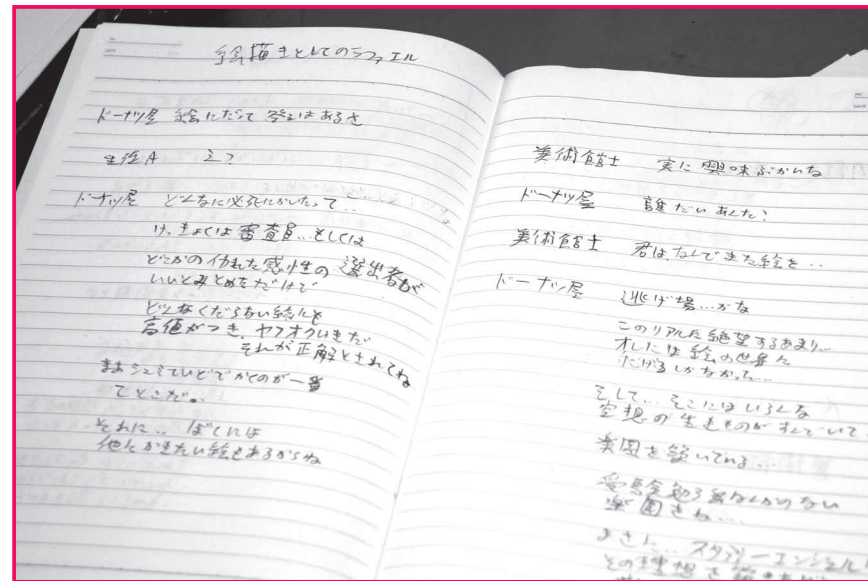 絵描きとしてのラファエル
ドーナツ屋 絵にだって答えはあるさ
生徒A え?
ドーナツ屋 どんなに必死にかいたって‥
けっきょくは審査員…もしくは
どこかのイカれた感性の選出者が
いいとみとめただけで
どんなくだらない絵にも
高値がつき、ヤフオクいきだ
それが正解とされてね
まあシュミていどでかくのが一番
てとこだ。
それに‥ ぼくには
他にかきたい絵もあるからね
美術館士 実に興味ぶかいな
ドーナツ屋 誰だいあんた?
美術館士 君は、なんでまた絵を‥
ドーナツ屋 逃げ場…かな
このリアルに絶望するあまり…
オレには絵の世界に
にげるしかなかった…
そして… そこにはいろんな
空想の生きものがすんでいて
楽園を築いている…
受験勉強なんかのない
楽園さね…
まさに…
その理想を